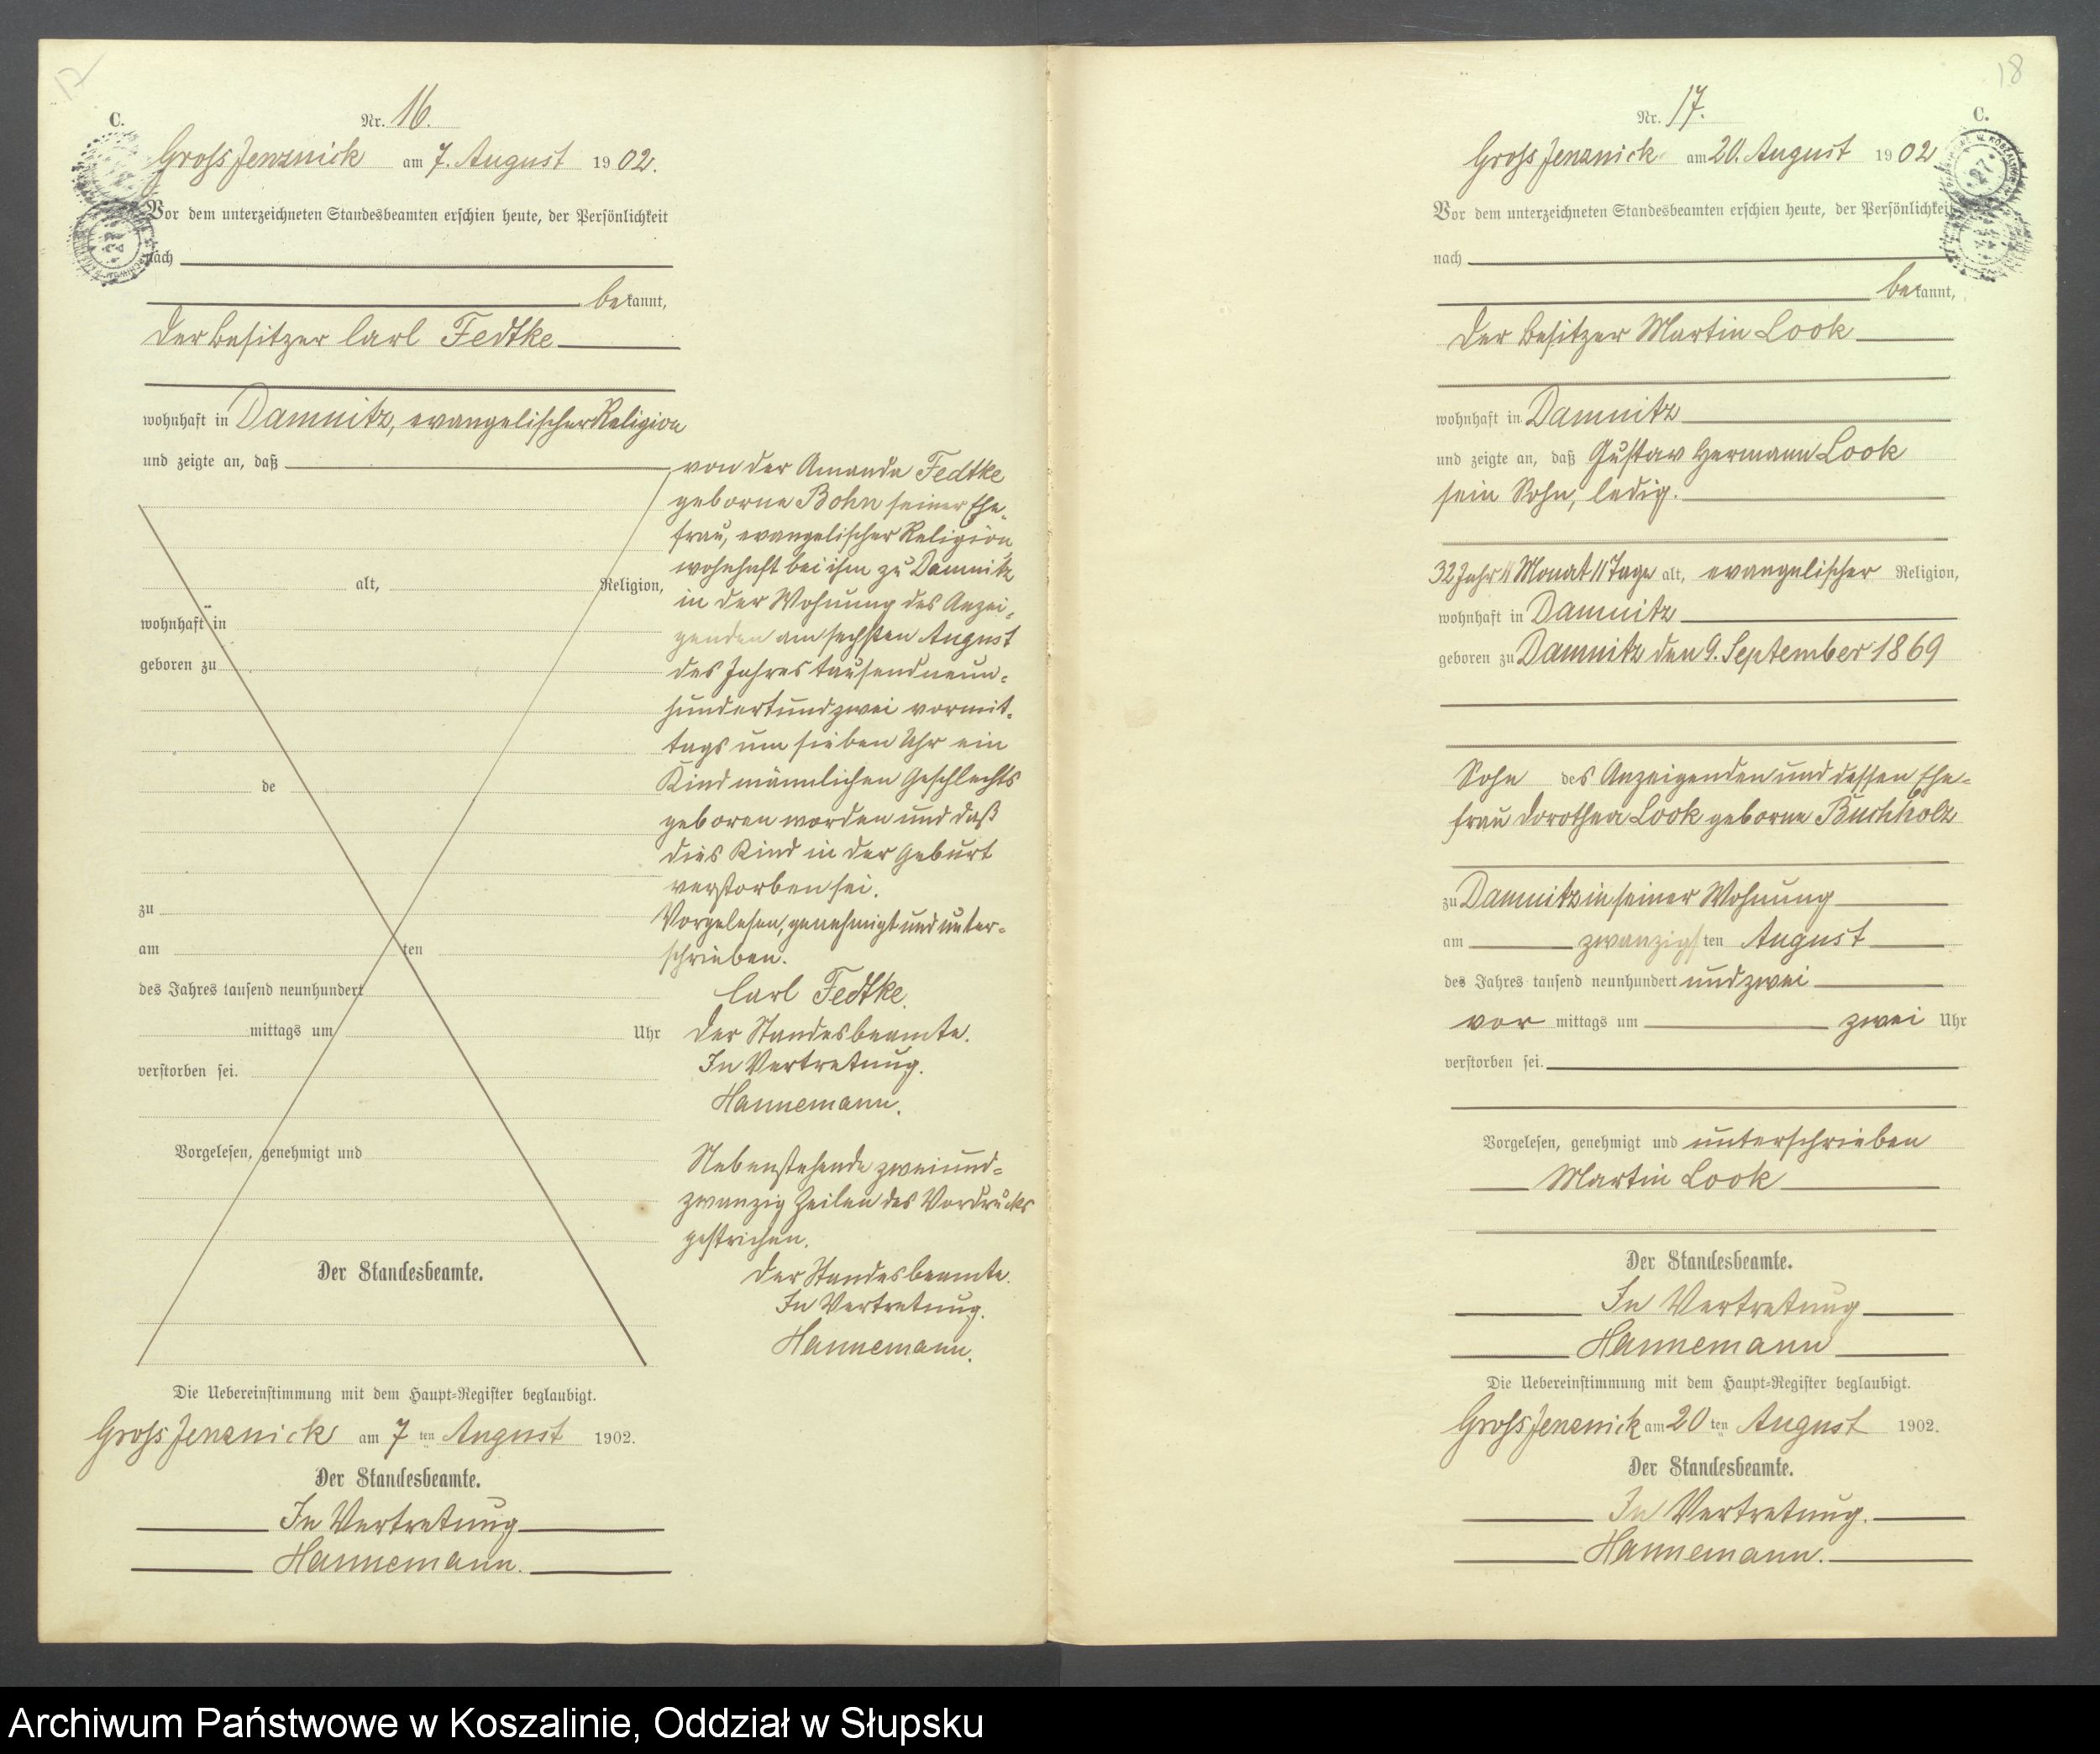 17
C.
Nr. 16.
Groß Jenznick am 7. August 1902.
Vor dem unterzeichneten Standesbeamten erschien heute, der Persönlichkeit
nach
bekannt,
der Besitzer Carl Fedtke
wohnhaft in Damnitz, evangelischer Religion
und zeigte an, daß
von der Amanda Fedtke
geborne Bohn seiner Ehe-
frau, evangelischer Religion
wohnhaft bei ihm zu Damnitz
in der Wohnung des Anzei-
genden am sechsten August
des Jahres tausend neun-
hundert und zwei vormit-
tags um sieben Uhr ein
Kind männlichen Geschlechts
geboren worden und daß
dies Kind in der Geburt
verstorben sei.
Vorgelesen, genehmigt und unter-
schrieben.
Carl Fedtke.
Der Standesbeamte.
In Vertretung.
Hannemann.
Nebenstehende zweiund-
zwanzig Zeilen des Vordrucks
gestrichen.
Der Standesbeamte.
In Vertretung.
Hannemann.
alt, Religion,
wohnhaft in
geboren zu
de
zu
am ten
des Jahres tausend neunhundert
mittags um Uhr
verstorben sei.
Vorgelesen, genehmigt und
Der Standesbeamte.
Die Uebereinstimmung mit dem Haupt-Register beglaubigt.
Gross Jenznick am 7 ten August 1902.
Der Standesbeamte.
In Vertretung
Hannemann.
18
C.
Nr. 17.
Groß Jenznick am 20. August 1902
Vor dem unterzeichneten Standesbeamten erschien heute, der Persönlichkeit
nach
bekannt,
der Besitzer Martin Look
wohnhaft in Damnitz
und zeigte an, daß Gustav Hermann Look
sein Sohn, ledig.
32 Jahr 11 Monat 11 Tage alt, evangelischer Religion,
wohnhaft in Damnitz
geboren zu Damnitz den 9. September 1869
Sohn des Anzeigenden und dessen Ehe-
frau Dorothea Look geborne Buchholz
zu Damnitz in seiner Wohnung
am zwanzigsten August
des Jahres tausend neunhundert und zwei
vor mittags um zwei Uhr
verstorben sei.
Vorgelesen, genehmigt und unterschrieben
Martin Look
Der Standesbeamte.
In Vertretung
Hannemann
Die Uebereinstimmung mit dem Haupt-Register beglaubigt.
Gross Jenznick am 20 ten August 1902.
Der Standesbeamte.
In Vertretung.
Hannemann.
Archiwum Państwowe w Koszalinie, Oddział w Słupsku